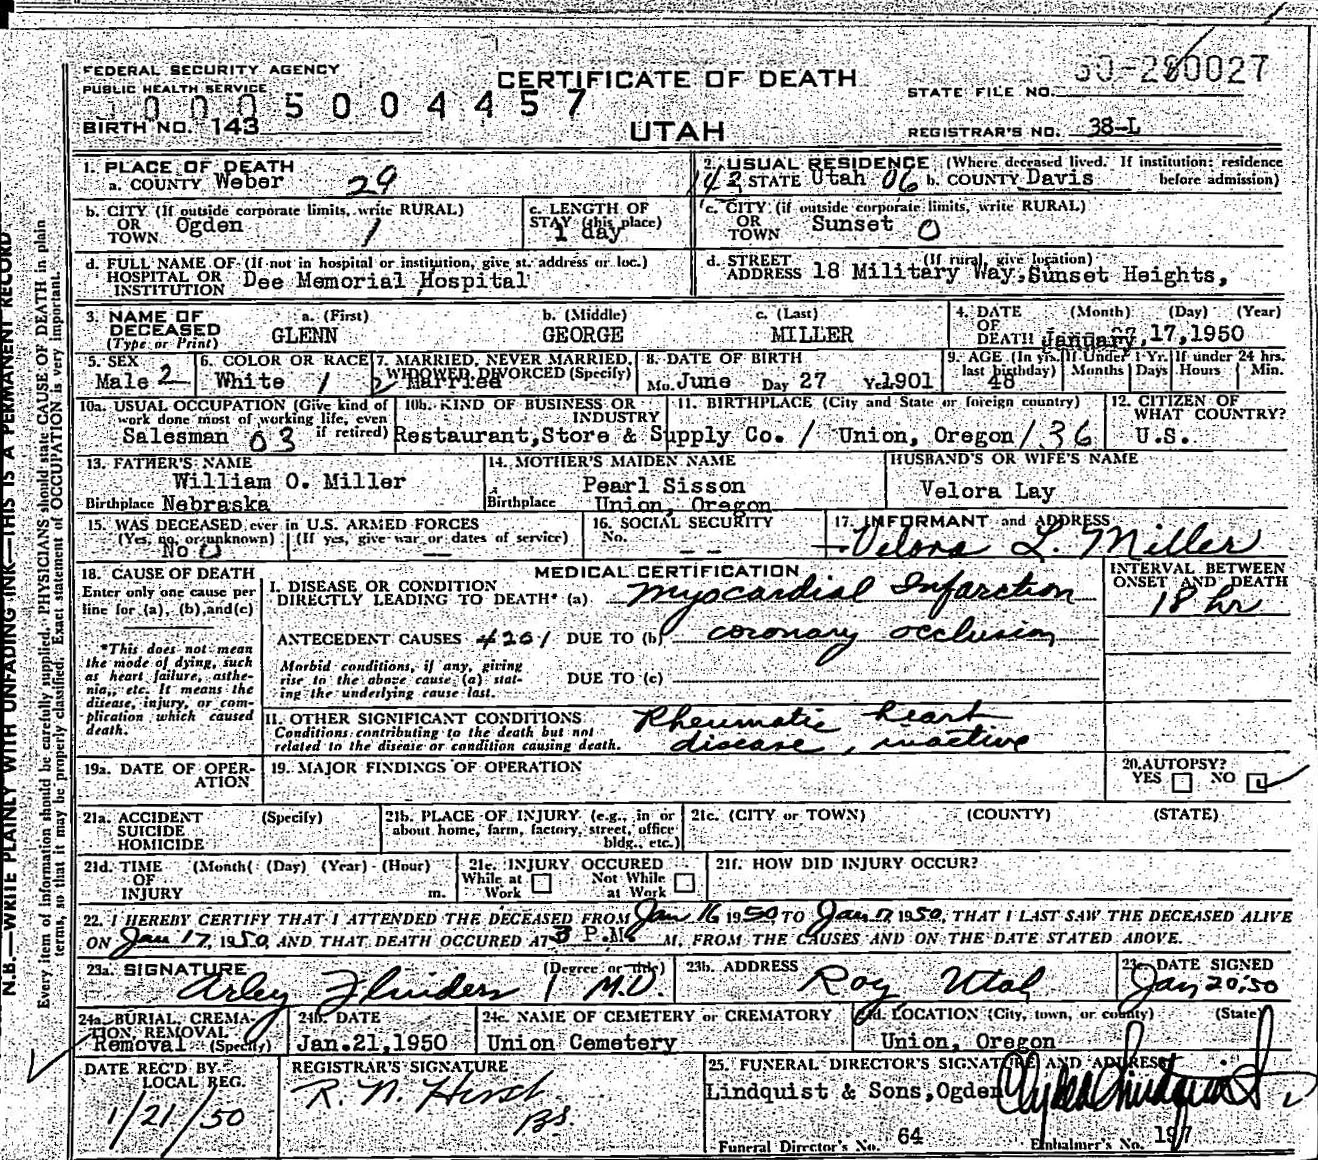 FEDERAL SECURITY AGENCY
PUBLIC HEALTH SERVICE
CERTIFICATE OF DEATH
UTAH
0005004457
BIRTH NO. 143
STATE FILE NO. 50-280027
REGISTRAR'S NO. 38-L
N.B.—WRITE PLAINLY WITH UNFADING INK—THIS IS A PERMANENT RECORD
Every item of information should be carefully supplied. PHYSICIANS should state CAUSE OF DEATH in plain
terms, so that it may be properly classified. Exact statement of OCCUPATION is very important.
1. PLACE OF DEATH
a. COUNTY Weber 29
2. USUAL RESIDENCE (Where deceased lived. If institution: residence
before admission)
STATE Utah 06 b. COUNTY Davis
b. CITY (If outside corporate limits, write RURAL)
OR
TOWN Ogden 1
c. LENGTH OF
STAY (this place)
1 day
c. CITY (if outside corporate limits, write RURAL)
OR
TOWN Sunset 0
d. FULL NAME OF (If not in hospital or institution, give st. address or loc.)
HOSPITAL OR
INSTITUTION Dee Memorial Hospital
d. STREET (If rural, give location)
ADDRESS 18 Military Way, Sunset Heights,
3. NAME OF
DECEASED
(Type or Print)
a. (First) b. (Middle) c. (Last)
GLENN GEORGE MILLER
4. DATE (Month) (Day) (Year)
OF
DEATH January 17, 1950
5. SEX
Male 2
6. COLOR OR RACE
White 1
7. MARRIED, NEVER MARRIED,
WIDOWED DIVORCED (Specify)
2 Married
8. DATE OF BIRTH
Mo. June Day 27 Yr. 1901
9. AGE (In yrs. last birthday) 48
If Under 1 Yr. Months Days
If under 24 hrs. Hours Min.
10a. USUAL OCCUPATION (Give kind of
work done most of working life, even
if retired)
Salesman 03
10b. KIND OF BUSINESS OR
INDUSTRY
Restaurant,Store & Supply Co. /
11. BIRTHPLACE (City and State or foreign country)
Union, Oregon / 36
12. CITIZEN OF
WHAT COUNTRY?
U.S.
13. FATHER'S NAME
William O. Miller
Birthplace Nebraska
14. MOTHER'S MAIDEN NAME
Pearl Sisson
Birthplace Union, Oregon
HUSBAND'S OR WIFE'S NAME
Velora Lay
15. WAS DECEASED ever in U.S. ARMED FORCES
(Yes, no, or unknown) (If yes, give war or dates of service)
No 0 —
16. SOCIAL SECURITY
No. - -
17. INFORMANT and ADDRESS
Velora L. Miller
18. CAUSE OF DEATH
Enter only one cause per
line for (a), (b), and (c)
*This does not mean
the mode of dying, such
as heart failure, asthe-
nia, etc. It means the
disease, injury, or com-
plication which caused
death.
MEDICAL CERTIFICATION
I. DISEASE OR CONDITION
DIRECTLY LEADING TO DEATH* (a) Myocardial Infarction
ANTECEDENT CAUSES 4201 DUE TO (b) coronary occlusion
Morbid conditions, if any, giving
rise to the above cause (a) stat-
ing the underlying cause last.
DUE TO (c)
II. OTHER SIGNIFICANT CONDITIONS
Conditions contributing to the death but not
related to the disease or condition causing death.
Rheumatic heart
disease, inactive
INTERVAL BETWEEN
ONSET AND DEATH
18 hr
19a. DATE OF OPER-
ATION
19. MAJOR FINDINGS OF OPERATION
20. AUTOPSY?
YES NO
21a. ACCIDENT (Specify)
SUICIDE
HOMICIDE
21b. PLACE OF INJURY (e.g., in or
about home, farm, factory, street, office
bldg., etc.)
21c. (CITY or TOWN) (COUNTY) (STATE)
21d. TIME (Month( (Day) (Year) (Hour)
OF
INJURY m.
21e. INJURY OCCURED
While at Work Not While at Work
21f. HOW DID INJURY OCCUR?
22. I HEREBY CERTIFY THAT I ATTENDED THE DECEASED FROM Jan 16 1950 TO Jan 17 1950, THAT I LAST SAW THE DECEASED ALIVE
ON Jan 17, 1950, AND THAT DEATH OCCURED AT 3 P.M. M, FROM THE CAUSES AND ON THE DATE STATED ABOVE.
23a. SIGNATURE (Degree or title)
Arley Flinders M.D.
23b. ADDRESS
Roy Utah
23c. DATE SIGNED
Jan 20, 50
24a. BURIAL, CREMA-
TION REMOVAL
Removal (Specify)
24b. DATE
Jan.21,1950
24c. NAME OF CEMETERY or CREMATORY
Union Cemetery
24d. LOCATION (City, town, or county) (State)
Union, Oregon
DATE REC'D BY
LOCAL REG.
1/21/50
REGISTRAR'S SIGNATURE
R. N. Hirst
BS.
25. FUNERAL DIRECTOR'S SIGNATURE AND ADDRESS
Lindquist & Sons, Ogden
Funeral Director's No. 64
Embalmer's No. 197